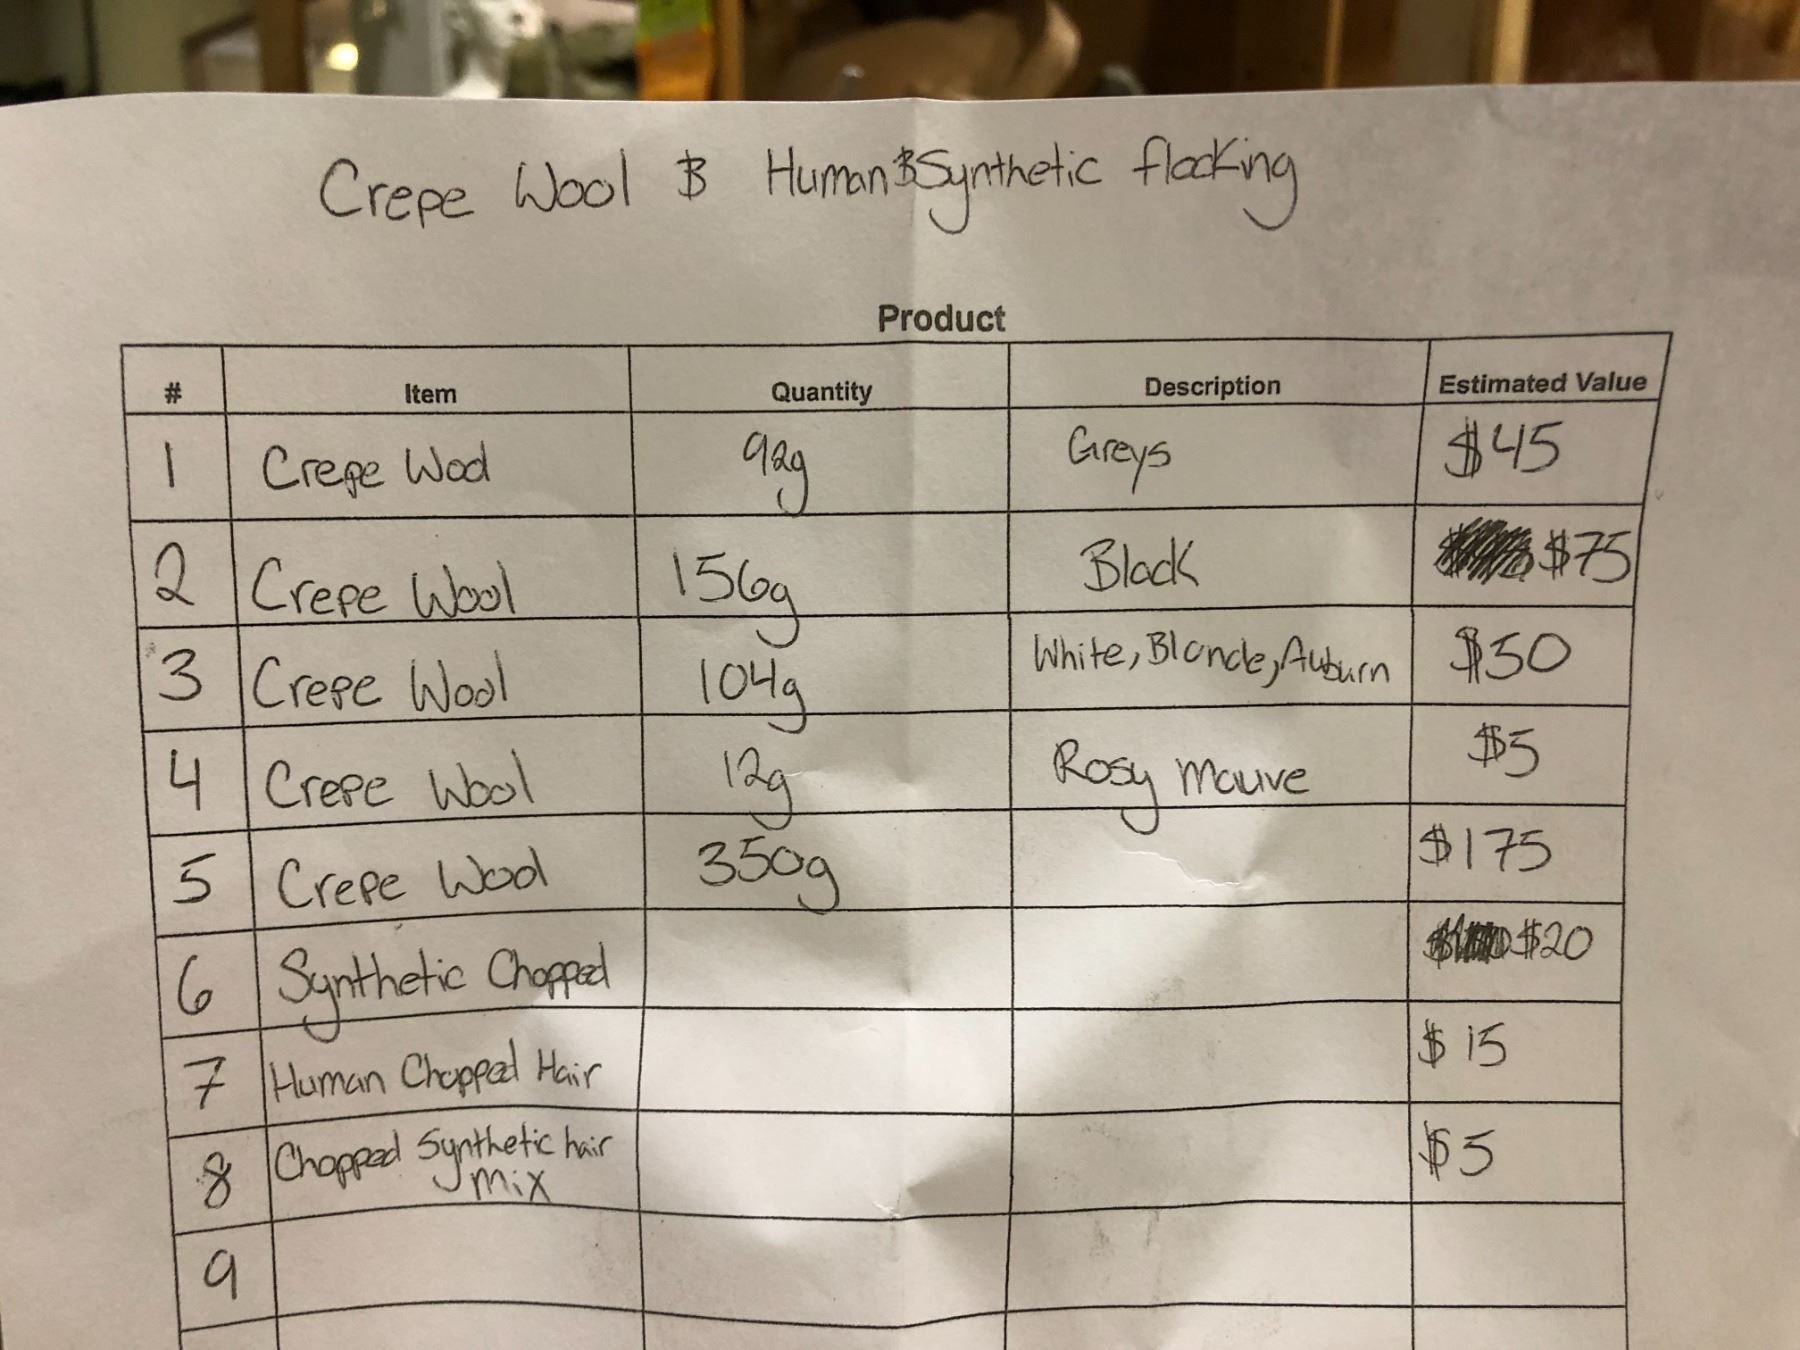 Crepe Wool & Human & Synthetic flocking
Product
# Item Quantity Description Estimated Value
1 Crepe Wool 92g Greys $45
2 Crepe Wool 156g Black $75
3 Crepe Wool 104g White, Blonde, Auburn $50
4 Crepe Wool 12g Rosy Mauve $5
5 Crepe Wool 350g $175
6 Synthetic Chopped $20
7 Human Chopped Hair $15
8 Chopped Synthetic hair
mix $5
9